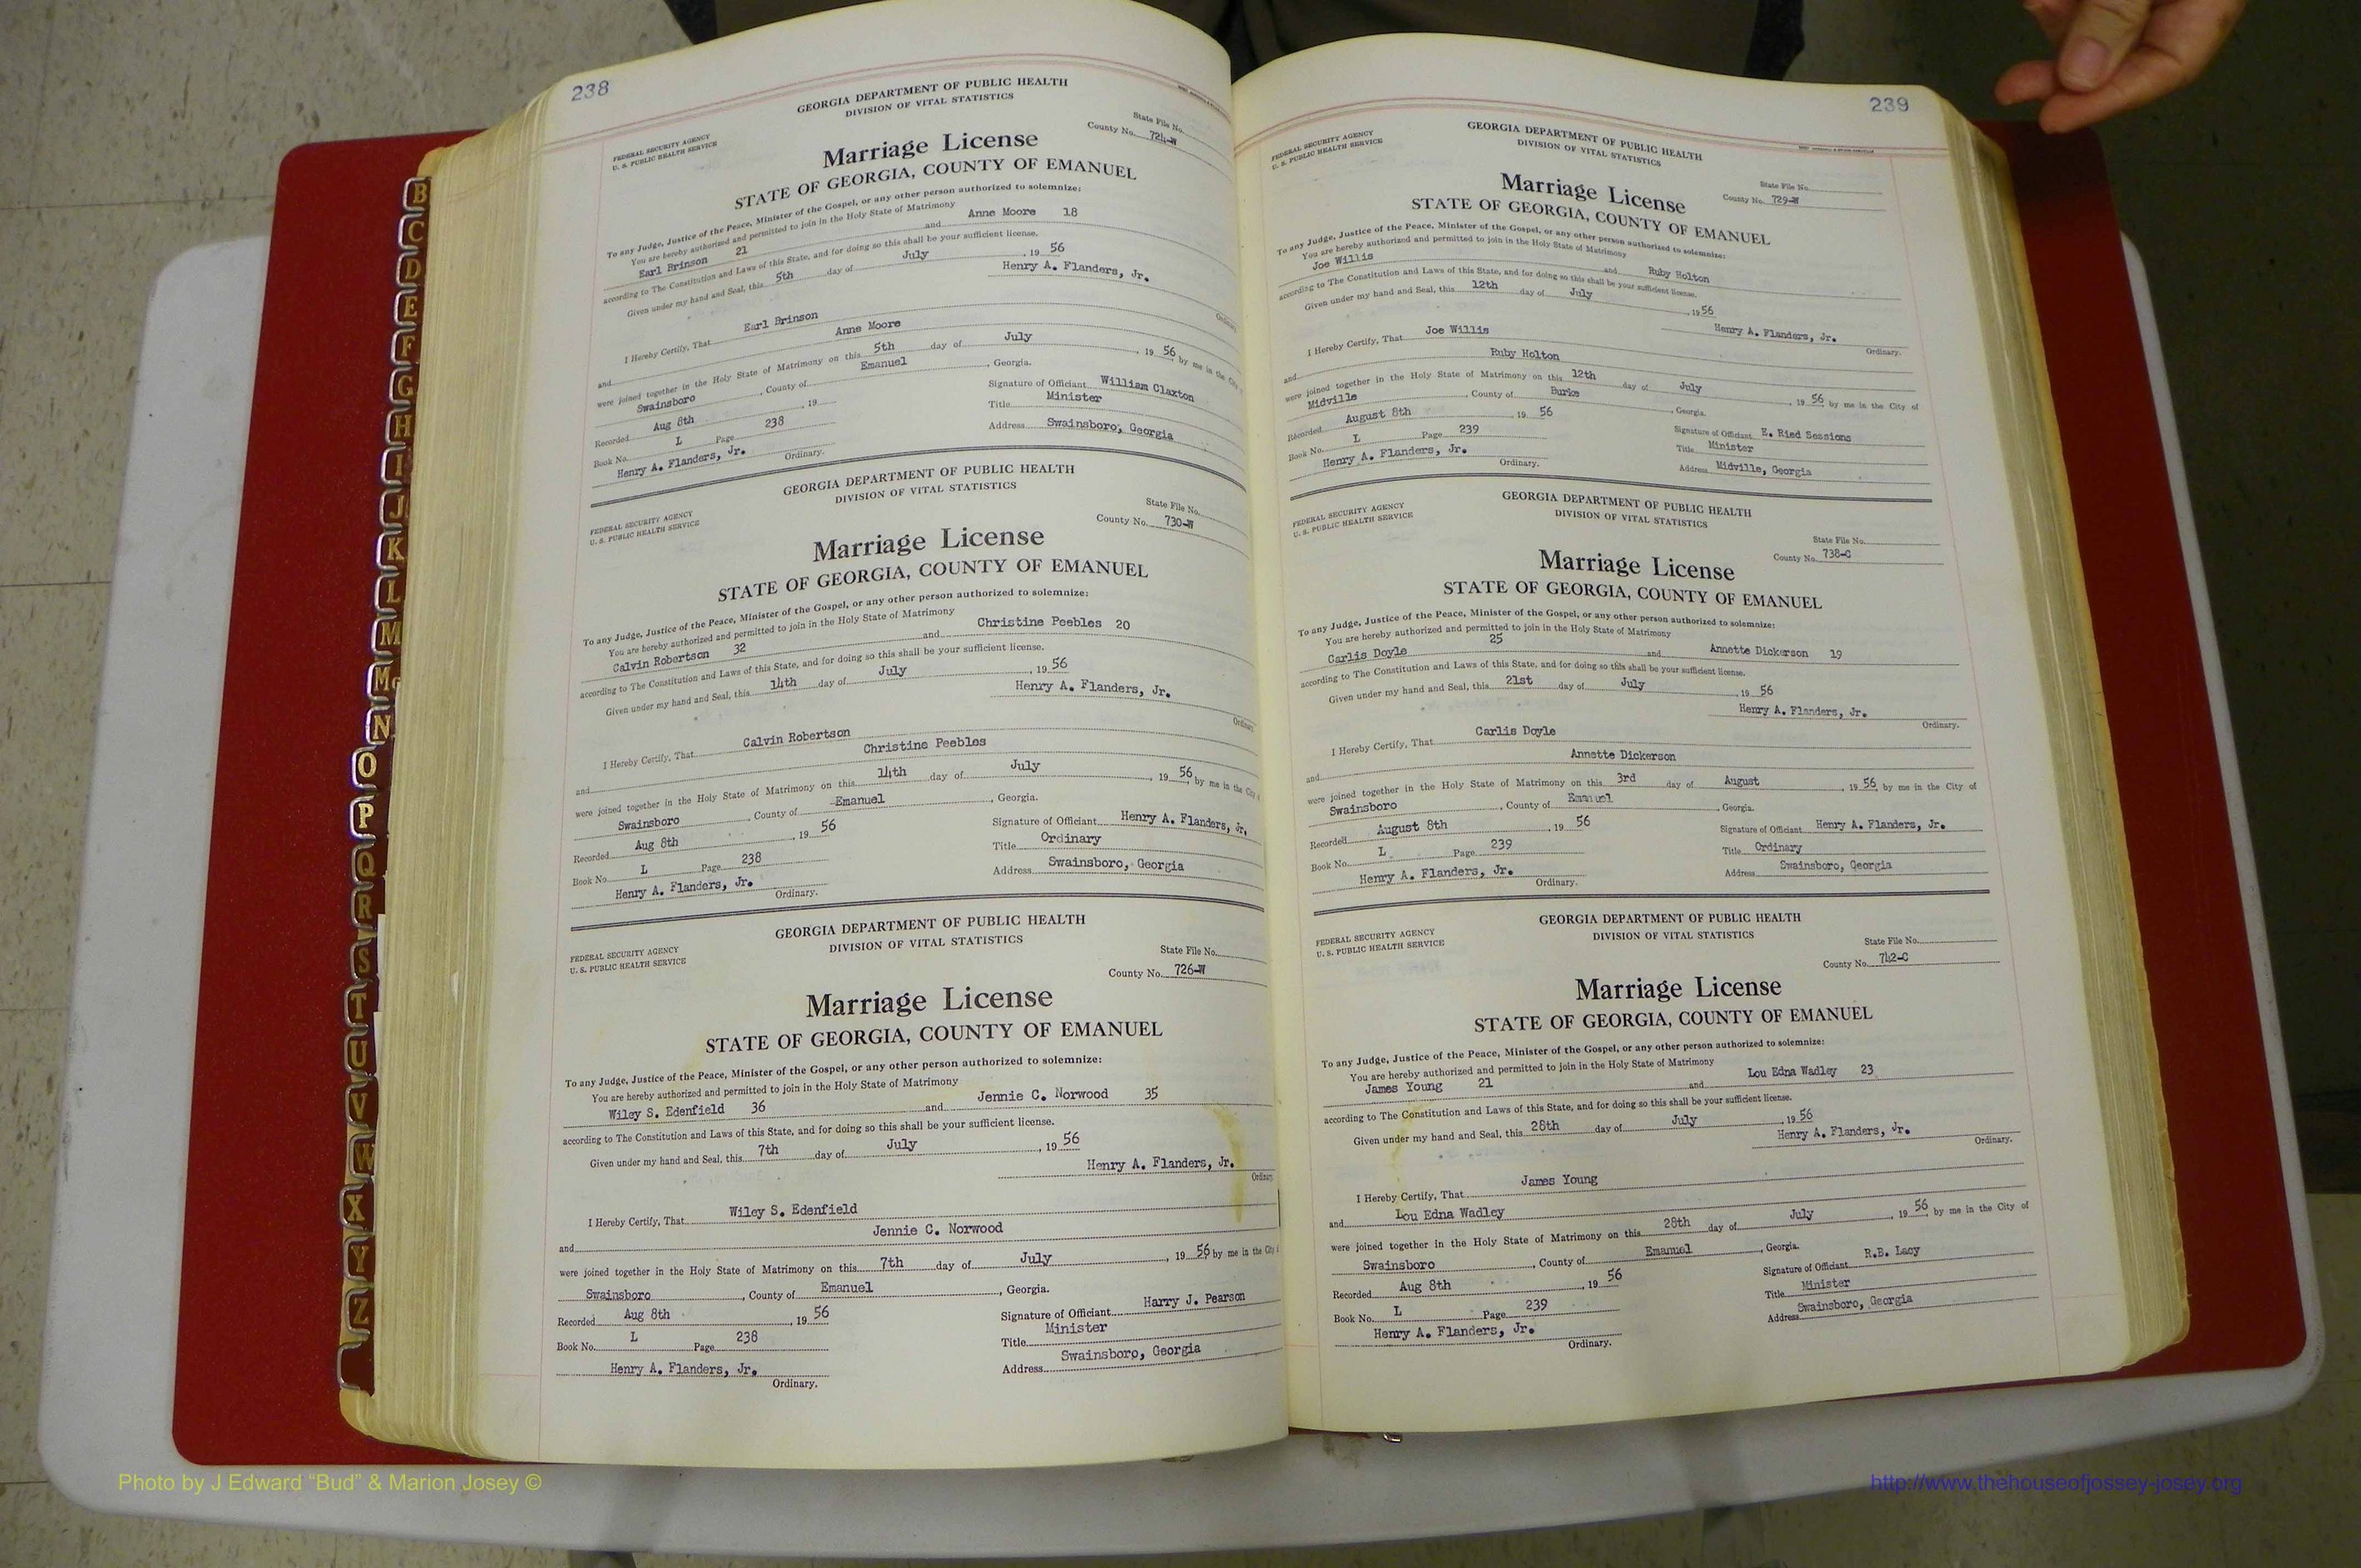 238
GEORGIA DEPARTMENT OF PUBLIC HEALTH
DIVISION OF VITAL STATISTICS
FEDERAL SECURITY AGENCY
U. S. PUBLIC HEALTH SERVICE
State File No.
County No. 724-W
Marriage License
STATE OF GEORGIA, COUNTY OF EMANUEL
To any Judge, Justice of the Peace, Minister of the Gospel, or any other person authorized to solemnize:
You are hereby authorized and permitted to join in the Holy State of Matrimony
Earl Brinson 21 and Anne Moore 18
according to The Constitution and Laws of this State, and for doing so this shall be your sufficient license.
Given under my hand and Seal, this 5th day of July , 19 56
Henry A. Flanders, Jr.
Ordinary
I Hereby Certify, That Earl Brinson
and Anne Moore
were joined together in the Holy State of Matrimony on this 5th day of July , 19 56 by me in the City
Swainsboro , County of Emanuel , Georgia.
Recorded Aug 8th , 19
Signature of Officiant William Claxton
Book No. L Page 238
Title Minister
Henry A. Flanders, Jr.
Address Swainsboro, Georgia
Ordinary.
GEORGIA DEPARTMENT OF PUBLIC HEALTH
DIVISION OF VITAL STATISTICS
FEDERAL SECURITY AGENCY
U. S. PUBLIC HEALTH SERVICE
State File No.
County No. 730-W
Marriage License
STATE OF GEORGIA, COUNTY OF EMANUEL
To any Judge, Justice of the Peace, Minister of the Gospel, or any other person authorized to solemnize:
You are hereby authorized and permitted to join in the Holy State of Matrimony
Calvin Robertson 32 and Christine Peebles 20
according to The Constitution and Laws of this State, and for doing so this shall be your sufficient license.
Given under my hand and Seal, this 14th day of July , 19 56
Henry A. Flanders, Jr.
Ordinary
I Hereby Certify, That Calvin Robertson
and Christine Peebles
were joined together in the Holy State of Matrimony on this 14th day of July , 19 56 by me in the City
Swainsboro , County of Emanuel , Georgia.
Recorded Aug 8th , 19 56
Signature of Officiant Henry A. Flanders, Jr.
Book No. L Page 238
Title Ordinary
Henry A. Flanders, Jr.
Address Swainsboro, Georgia
Ordinary.
GEORGIA DEPARTMENT OF PUBLIC HEALTH
DIVISION OF VITAL STATISTICS
FEDERAL SECURITY AGENCY
U. S. PUBLIC HEALTH SERVICE
State File No.
County No. 726-W
Marriage License
STATE OF GEORGIA, COUNTY OF EMANUEL
To any Judge, Justice of the Peace, Minister of the Gospel, or any other person authorized to solemnize:
You are hereby authorized and permitted to join in the Holy State of Matrimony
Wiley S. Edenfield 36 and Jennie C. Norwood 35
according to The Constitution and Laws of this State, and for doing so this shall be your sufficient license.
Given under my hand and Seal, this 7th day of July , 19 56
Henry A. Flanders, Jr.
Ordinary
I Hereby Certify, That Wiley S. Edenfield
and Jennie C. Norwood
were joined together in the Holy State of Matrimony on this 7th day of July , 19 56 by me in the City
Swainsboro , County of Emanuel , Georgia.
Recorded Aug 8th , 19 56
Signature of Officiant Harry J. Pearson
Book No. L Page 238
Title Minister
Henry A. Flanders, Jr.
Address Swainsboro, Georgia
Ordinary.
239
GEORGIA DEPARTMENT OF PUBLIC HEALTH
DIVISION OF VITAL STATISTICS
FEDERAL SECURITY AGENCY
U. S. PUBLIC HEALTH SERVICE
State File No.
County No. 729-W
Marriage License
STATE OF GEORGIA, COUNTY OF EMANUEL
To any Judge, Justice of the Peace, Minister of the Gospel, or any other person authorized to solemnize:
You are hereby authorized and permitted to join in the Holy State of Matrimony
Joe Willis and Ruby Holton
according to The Constitution and Laws of this State, and for doing so this shall be your sufficient license.
Given under my hand and Seal, this 12th day of July , 19 56
Henry A. Flanders, Jr.
Ordinary.
I Hereby Certify, That Joe Willis
and Ruby Holton
were joined together in the Holy State of Matrimony on this 12th day of July , 19 56 by me in the City of
Midville , County of Burke , Georgia.
Recorded August 8th , 19 56
Signature of Officiant E. Ried Sessions
Book No. L Page 239
Title Minister
Henry A. Flanders, Jr.
Address Midville, Georgia
Ordinary.
GEORGIA DEPARTMENT OF PUBLIC HEALTH
DIVISION OF VITAL STATISTICS
FEDERAL SECURITY AGENCY
U. S. PUBLIC HEALTH SERVICE
State File No.
County No. 738-C
Marriage License
STATE OF GEORGIA, COUNTY OF EMANUEL
To any Judge, Justice of the Peace, Minister of the Gospel, or any other person authorized to solemnize:
You are hereby authorized and permitted to join in the Holy State of Matrimony
Carlis Doyle 25 and Annette Dickerson 19
according to The Constitution and Laws of this State, and for doing so this shall be your sufficient license.
Given under my hand and Seal, this 21st day of July , 19 56
Henry A. Flanders, Jr.
Ordinary.
I Hereby Certify, That Carlis Doyle
and Annette Dickerson
were joined together in the Holy State of Matrimony on this 3rd day of August , 19 56 by me in the City of
Swainsboro , County of Emanuel , Georgia.
Recorded August 8th , 19 56
Signature of Officiant Henry A. Flanders, Jr.
Book No. L Page 239
Title Ordinary
Henry A. Flanders, Jr.
Address Swainsboro, Georgia
Ordinary.
GEORGIA DEPARTMENT OF PUBLIC HEALTH
DIVISION OF VITAL STATISTICS
FEDERAL SECURITY AGENCY
U. S. PUBLIC HEALTH SERVICE
State File No.
County No. 742-C
Marriage License
STATE OF GEORGIA, COUNTY OF EMANUEL
To any Judge, Justice of the Peace, Minister of the Gospel, or any other person authorized to solemnize:
You are hereby authorized and permitted to join in the Holy State of Matrimony
James Young 21 and Lou Edna Wadley 23
according to The Constitution and Laws of this State, and for doing so this shall be your sufficient license.
Given under my hand and Seal, this 28th day of July , 19 56
Henry A. Flanders, Jr.
Ordinary.
I Hereby Certify, That James Young
and Lou Edna Wadley
were joined together in the Holy State of Matrimony on this 28th day of July , 19 56 by me in the City of
Swainsboro , County of Emanuel , Georgia.
Recorded Aug 8th , 19 56
Signature of Officiant R.B. Lacy
Book No. L Page 239
Title Minister
Henry A. Flanders, Jr.
Address Swainsboro, Georgia
Ordinary.
B
C
D
E
F
G
H
I
J
K
L
M
Mc
N
O
P
Q
R
S
T
U
V
W
X
Y
Z
Photo by J Edward “Bud” & Marion Josey ©
http://www.thehouseofjossey-josey.org